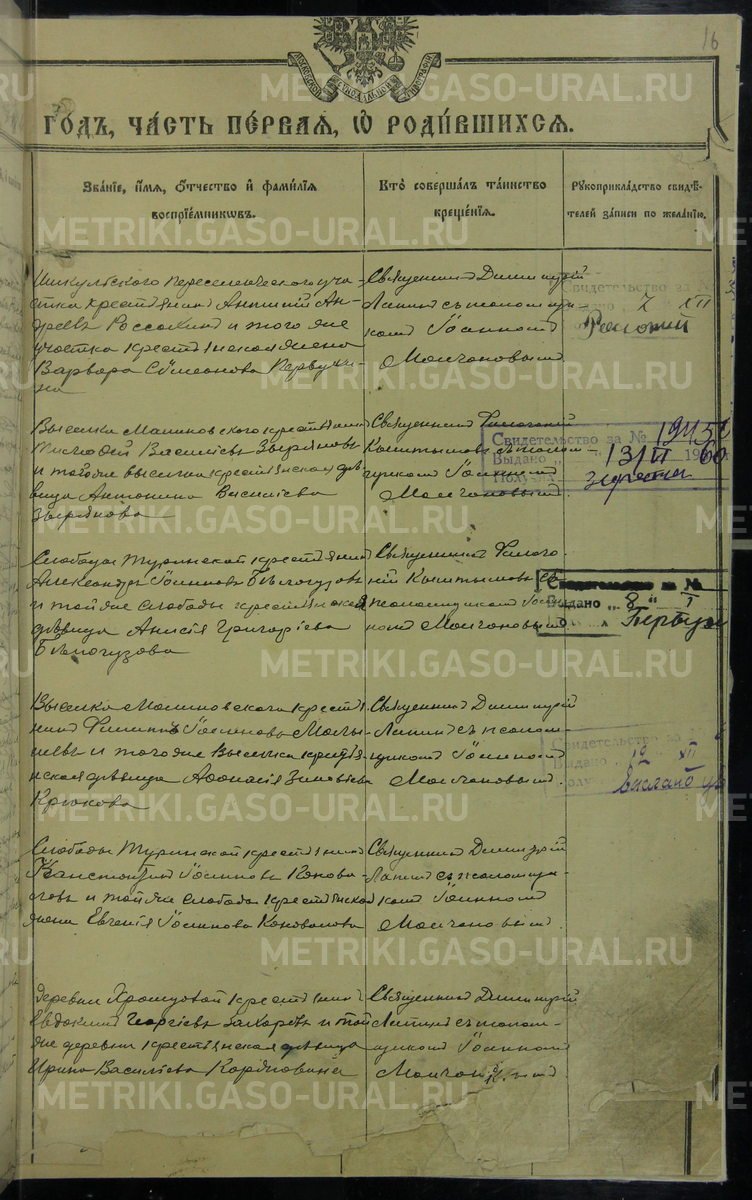 16
годъ, часть первая, ѡ родившихся.
Званіе, имя, отчество и фамилія
воспріемниковъ.
Кто совершалъ таинство
крещенія.
Рукоприкладство свидѣ-
телей записи по желанію.
переселенческого уча
стка крестьянинъ Ан-
дреевъ и того же
участка крестьянская жена
Варвара Сѵмеонова
Священникъ Димитрій
Лапинъ съ псаломщи-
комъ Іоанномъ
Молчановымъ
Свидетельство за №
7 XII
Выселка Малиновского крестьянинъ
Васильевъ Зыряновъ
и того же выселка крестьянская дѣ-
вица Антонина Васильева
Зырянова
Священникъ
съ псалом-
щикомъ Іоанномъ
Молчановымъ
Свидетельство за №
Выдано 13/VI 1960
Слободы Туринской крестьянинъ
Александръ Іоанновъ Бѣлогузовъ
и той же слободы крестьянская
дѣвица Анисія Григоріева
Бѣлогузова
Священникъ
съ
псаломщикомъ Іоан-
номъ Молчановымъ
Свидетельство за №
Выдано „8“ I
Выселка Малиновского кресть
янинъ Филиппъ Іоанновъ Малы
шевъ и того же выселка крестья
нская дѣвица Афанасія Зиновьева
Крюкова
Священникъ Димитрій
Лапинъ съ псалом-
щикомъ Іоанномъ
Молчановымъ
Свидетельство за №
Выдано 19 XII
Слободы Туринской крестьянинъ
Константинъ Іоанновъ Конова-
ловъ и той же слободы крестьянская
жена Евгенія Іоаннова Коновалова
Священникъ Димитрій
Лапинъ съ псаломщи-
комъ Іоанномъ
Молчановымъ
Деревни крестьянинъ
Евдокимъ Георгіевъ Захаровъ и той
же деревни крестьянская дѣвица
Ирина Васильева
Священникъ Димитрій
Лапинъ съ псалом-
щикомъ Іоанномъ
Молчановымъ
METRIKI.GASO-URAL.RU